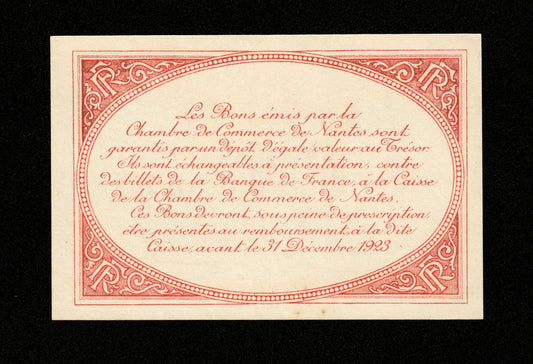 RF RF
Les Bons émis par la
Chambre de Commerce de Nantes sont
garantis par un dépôt d'égale valeur au Trésor.
Ils sont échangeables à présentation, contre
des billets de la Banque de France, à la Caisse
de la Chambre de Commerce de Nantes.
Ces Bons devront, sous peine de prescription,
être présentés au remboursement, à la dite
Caisse, avant le 31 Décembre 1923
RF RF